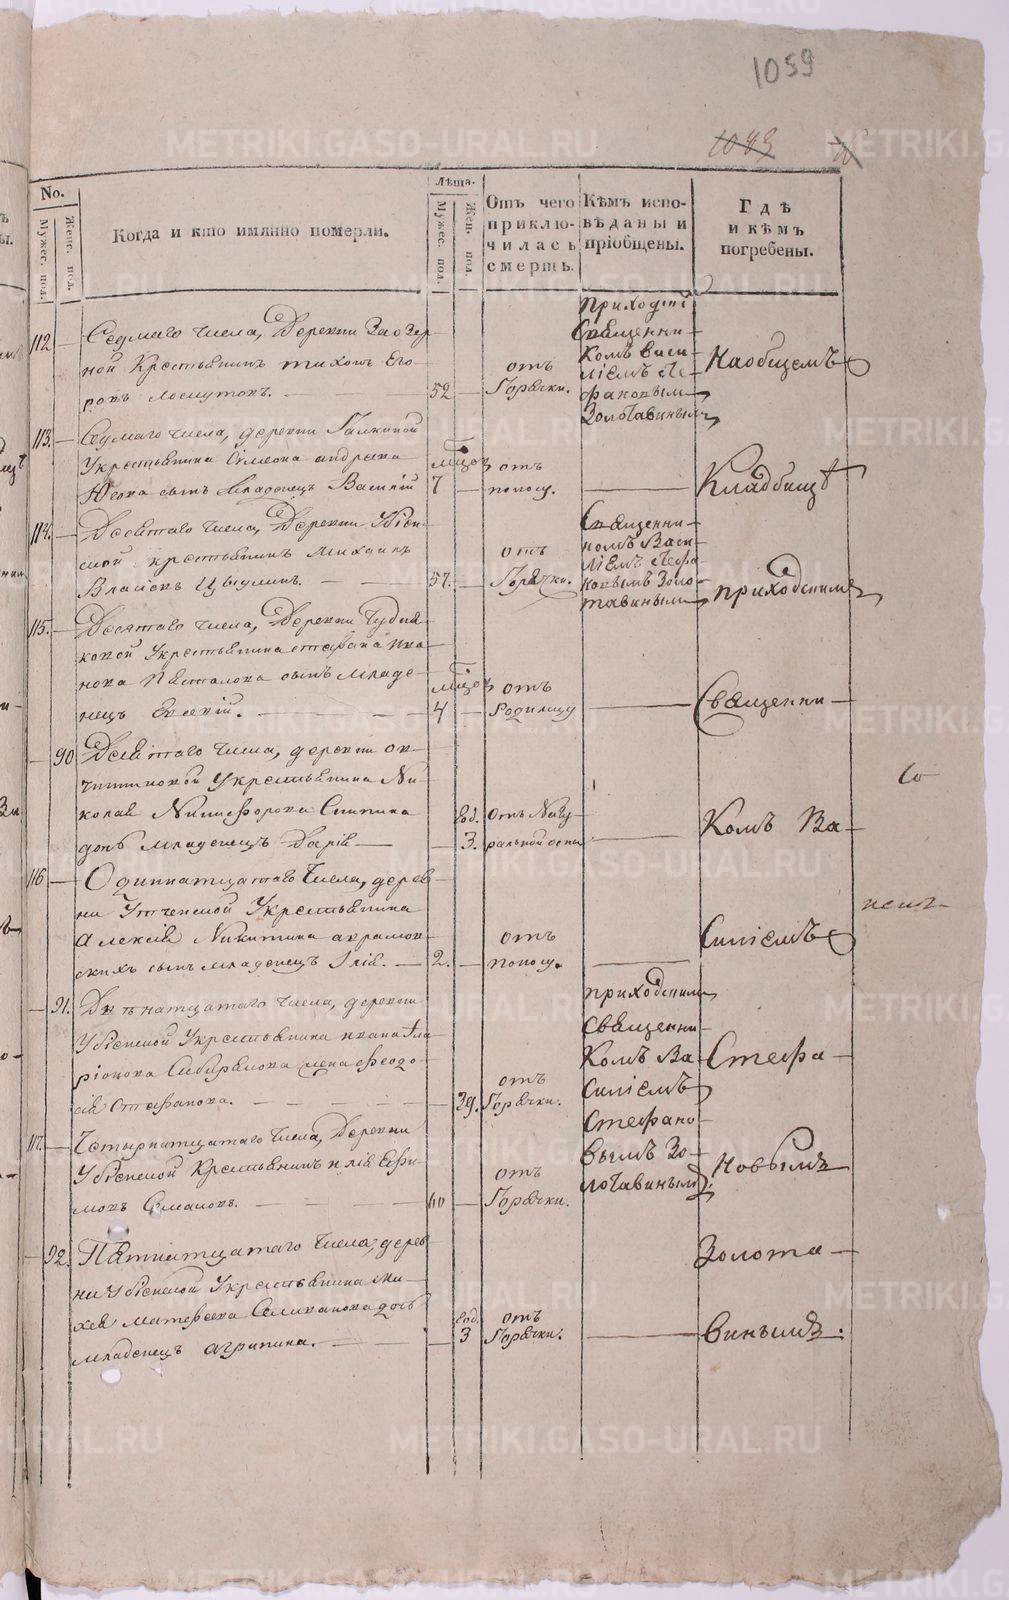 1059
1043
No.
Мужес. пол.
Женс. пол.
Когда и кто имянно померли.
Лѣта.
Мужес. пол.
Жен. пол.
Отъ чего
приклю-
чилась
смерть.
Кѣмъ испо-
вѣданы и
пріобщены.
Гдѣ
и кѣмъ
погребены.
112
Седмаго числа, Деревни Заозер
ной Крестьянинъ Тихонъ Его
ровъ Лоскутовъ.
52
отъ
Горячки.
Приходскі
Священни-
комъ Васи-
ліемъ Сте-
фановымъ
Золотавинымъ
Наобщемъ
113.
Седмаго числа, деревни Галкиной
Укрестьянина Сѵмеона андреева
сынъ младенецъ Василій
7
отъ
поносу.
Кладбищѣ
114.
Десятаго числа, Деревни Убіен-
ной крестьянинъ Михаилъ
Власовъ
57.
отъ
Горячки.
Священни-
комъ Васи-
ліемъ Стефа-
новымъ Золо-
тавинымъ
приходскимъ
115.
Десятаго числа, Деревни
ковой Укрестьянина стефана ива
нова сынъ младе-
нецъ
4
отъ
Родимцу
Священни-
90
Десятаго числа, деревни ов-
чинниковой Укрестьянина Ни
колая Никифорова
дочь младенецъ Дарія
год.
3.
отъ Нату
ральной оспы
комъ Ва-
116
Одиннатцатаго числа, дерев
ни Утченской Укрестьянина
Алексія Никитина
скихъ сынъ младенецъ Ілія.
2.
отъ
поносу.
Силіемъ
91.
Двѣнатцатаго числа, деревни
Убіенной Укрестьянина ивана Іла
ріонова Сибирякова жена Феодо-
сія Стефанова.
39.
отъ
Горячки.
приходскимъ
Священни-
комъ Ва-
силіемъ
Стефано-
вымъ Зо-
лотавинымъ
Стефа-
117.
Четырнатцатаго числа, Деревни
Убіенной Крестьянинъ илія Ефи-
мовъ
60
отъ
Горячки.
новымъ
92.
Пятнатцатаго числа, дерев
ни Убіенной Укрестьянина Ми-
хея Матвеева Селиванова дочь
младенецъ агрипина.
год.
3
отъ
Горячки.
Золота-
винымъ.
METRIKI.GASO-URAL.RU